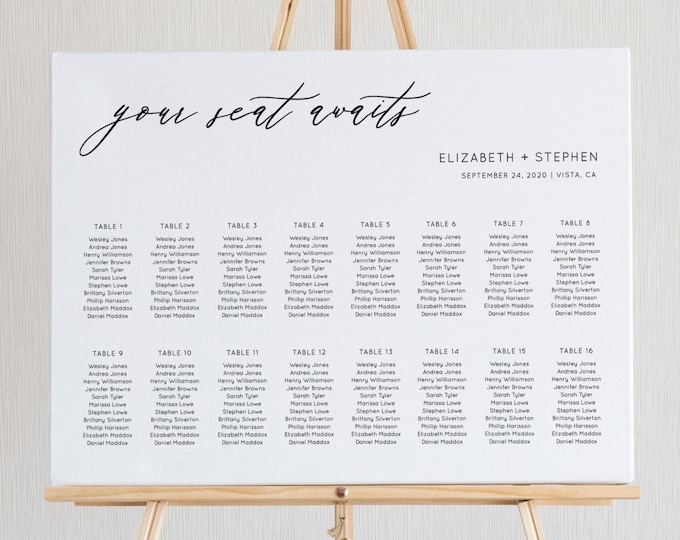 your seat awaits
ELIZABETH + STEPHEN
SEPTEMBER 24, 2020 | VISTA, CA
TABLE 1
Wesley Jones
Andrea Jones
Henry Williamson
Jennifer Browns
Sarah Tyler
Marissa Lowe
Stephen Lowe
Brittany Silverton
Phillip Harisson
Elizabeth Maddox
Daniel Maddox
TABLE 2
Wesley Jones
Andrea Jones
Henry Williamson
Jennifer Browns
Sarah Tyler
Marissa Lowe
Stephen Lowe
Brittany Silverton
Phillip Harisson
Elizabeth Maddox
Daniel Maddox
TABLE 3
Wesley Jones
Andrea Jones
Henry Williamson
Jennifer Browns
Sarah Tyler
Marissa Lowe
Stephen Lowe
Brittany Silverton
Phillip Harisson
Elizabeth Maddox
Daniel Maddox
TABLE 4
Wesley Jones
Andrea Jones
Henry Williamson
Jennifer Browns
Sarah Tyler
Marissa Lowe
Stephen Lowe
Brittany Silverton
Phillip Harisson
Elizabeth Maddox
Daniel Maddox
TABLE 5
Wesley Jones
Andrea Jones
Henry Williamson
Jennifer Browns
Sarah Tyler
Marissa Lowe
Stephen Lowe
Brittany Silverton
Phillip Harisson
Elizabeth Maddox
Daniel Maddox
TABLE 6
Wesley Jones
Andrea Jones
Henry Williamson
Jennifer Browns
Sarah Tyler
Marissa Lowe
Stephen Lowe
Brittany Silverton
Phillip Harisson
Elizabeth Maddox
Daniel Maddox
TABLE 7
Wesley Jones
Andrea Jones
Henry Williamson
Jennifer Browns
Sarah Tyler
Marissa Lowe
Stephen Lowe
Brittany Silverton
Phillip Harisson
Elizabeth Maddox
Daniel Maddox
TABLE 8
Wesley Jones
Andrea Jones
Henry Williamson
Jennifer Browns
Sarah Tyler
Marissa Lowe
Stephen Lowe
Brittany Silverton
Phillip Harisson
Elizabeth Maddox
Daniel Maddox
TABLE 9
Wesley Jones
Andrea Jones
Henry Williamson
Jennifer Browns
Sarah Tyler
Marissa Lowe
Stephen Lowe
Brittany Silverton
Phillip Harisson
Elizabeth Maddox
Daniel Maddox
TABLE 10
Wesley Jones
Andrea Jones
Henry Williamson
Jennifer Browns
Sarah Tyler
Marissa Lowe
Stephen Lowe
Brittany Silverton
Phillip Harisson
Elizabeth Maddox
Daniel Maddox
TABLE 11
Wesley Jones
Andrea Jones
Henry Williamson
Jennifer Browns
Sarah Tyler
Marissa Lowe
Stephen Lowe
Brittany Silverton
Phillip Harisson
Elizabeth Maddox
Daniel Maddox
TABLE 12
Wesley Jones
Andrea Jones
Henry Williamson
Jennifer Browns
Sarah Tyler
Marissa Lowe
Stephen Lowe
Brittany Silverton
Phillip Harisson
Elizabeth Maddox
Daniel Maddox
TABLE 13
Wesley Jones
Andrea Jones
Henry Williamson
Jennifer Browns
Sarah Tyler
Marissa Lowe
Stephen Lowe
Brittany Silverton
Phillip Harisson
Elizabeth Maddox
Daniel Maddox
TABLE 14
Wesley Jones
Andrea Jones
Henry Williamson
Jennifer Browns
Sarah Tyler
Marissa Lowe
Stephen Lowe
Brittany Silverton
Phillip Harisson
Elizabeth Maddox
Daniel Maddox
TABLE 15
Wesley Jones
Andrea Jones
Henry Williamson
Jennifer Browns
Sarah Tyler
Marissa Lowe
Stephen Lowe
Brittany Silverton
Phillip Harisson
Elizabeth Maddox
Daniel Maddox
TABLE 16
Wesley Jones
Andrea Jones
Henry Williamson
Jennifer Browns
Sarah Tyler
Marissa Lowe
Stephen Lowe
Brittany Silverton
Phillip Harisson
Elizabeth Maddox
Daniel Maddox